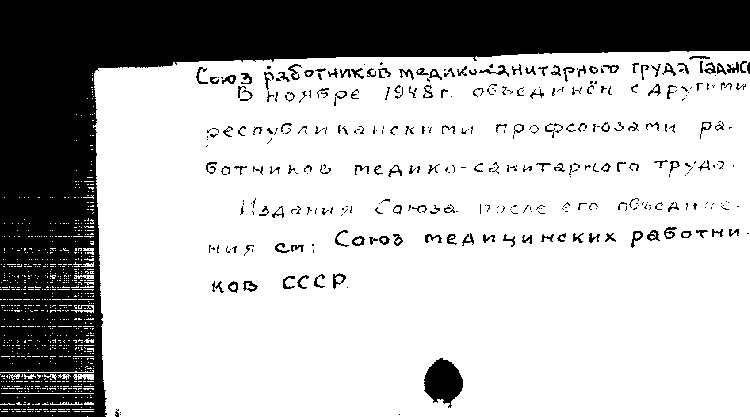 Союз работников медико-санитарного труда Таджс
В ноябре 1948г. объединён с другими
республиканскими профсоюзами ра-
ботников медико-санитарного труда.
Издания Союза после его объедине-
ния см: Союз медицинских работни-
ков СССР.